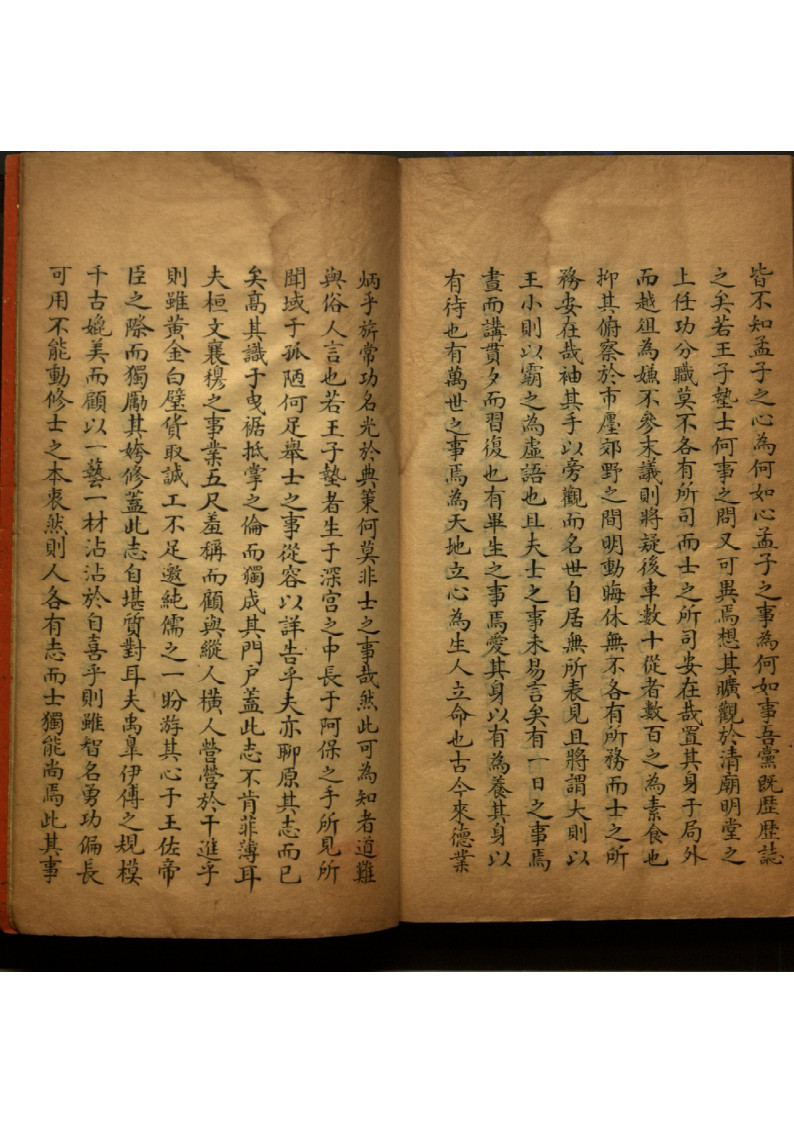 皆不知孟子之心為何如心孟子之事為何如事吾黨既歷歷誌
之矣若王子墊士何事之問又可異焉想其曠觀於清廟明堂之
上任功分職莫不各有所司而士之所司安在哉置其身于局外
而越俎為嫌不參末議則將疑後車數十從者數百之為素食也
抑其俯察於市廛郊野之間明動晦休無不各有所務而士之所
務安在哉袖其手以旁觀而名世自居無所表見且將謂大則以
王小則以霸之為虛語也且夫士之事未易言矣有一日之事焉
晝而講貫夕而習復也有畢生之事焉愛其身以有為養其身以
有待也有萬世之事焉為天地立心為生人立命也古今來德業
炳乎旂常功名光於典策何莫非士之事哉然此可為知者道難
與俗人言也若王子墊者生于深宮之中長于阿保之手所見所
聞域于孤陋何足舉士之事從容以詳告乎夫亦聊原其志而已
矣高其識于曳裾抵掌之倫而獨成其門户蓋此志不肯菲薄耳
夫桓文襄穆之事業五尺羞稱而顧與縱人橫人營營於干進乎
則雖黃金白璧貨取誠工不足邀純儒之一盼游其心于王佐帝
臣之際而獨勵其姱修蓋此志自堪質對耳夫禹臯伊傅之規模
千古媲美而顧以一藝一材沾沾於自喜乎則雖智名勇功偏長
可用不能動修士之本衷然則人各有志而士獨能尚焉此其事